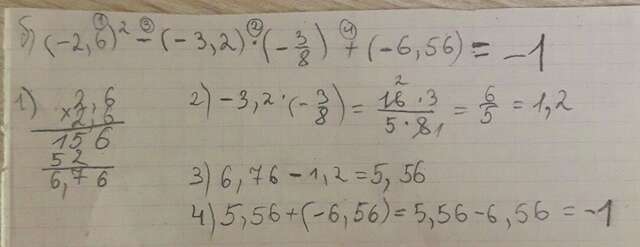 б) (-2,6)² - (-3,2) · (-3/8) + (-6,56) = -1
① ③ ② ④
1) 2,6
× 2,6
156
52
6,76
2) -3,2 · (-3/8) = 16² · 3 / 5 · 8₁ = 6/5 = 1,2
3) 6,76 - 1,2 = 5,56
4) 5,56 + (-6,56) = 5,56 - 6,56 = -1